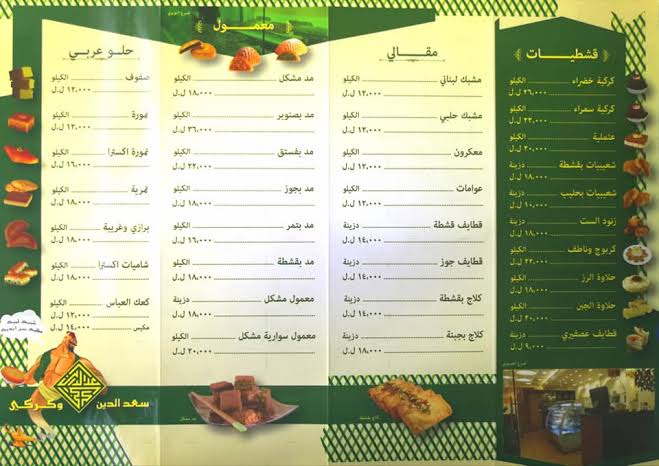 قشطيات
كركية خضراء الكيلو
٢٦,٠٠٠ ل.ل
كركية سمراء الكيلو
٢٢,٠٠٠ ل.ل
عثملية الكيلو
٢٠,٠٠٠ ل.ل
شعيبيات بقشطة دزينة
١٨,٠٠٠ ل.ل
شعيبيات بحليب دزينة
١٠,٠٠٠ ل.ل
زنود الست دزينة
١٨,٠٠٠ ل.ل
كربوج وناطف الكيلو
٢٢,٠٠٠ ل.ل
حلاوة الرز الكيلو
١٨,٠٠٠ ل.ل
حلاوة الجبن الكيلو
٢٠,٠٠٠ ل.ل
قطايف عصفيري دزينة
٩,٠٠٠ ل.ل
مقالي
مشبك لبناني الكيلو
١٢,٠٠٠ ل.ل
مشبك حلبي الكيلو
١٢,٠٠٠ ل.ل
معكرون الكيلو
١٢,٠٠٠ ل.ل
عوامات الكيلو
١٢,٠٠٠ ل.ل
قطايف قشطة دزينة
١٤,٠٠٠ ل.ل
قطايف جوز دزينة
١٤,٠٠٠ ل.ل
كلاج بقشطة دزينة
١٤,٠٠٠ ل.ل
كلاج بجبنة دزينة
١٨,٠٠٠ ل.ل
كلاج بقشطة
معمول
مد مشكل الكيلو
١٨,٠٠٠ ل.ل
مد بصنوبر الكيلو
٣٦,٠٠٠ ل.ل
مد بفستق الكيلو
٢٢,٠٠٠ ل.ل
مد بجوز الكيلو
١٨,٠٠٠ ل.ل
مد بتمر الكيلو
١٦,٠٠٠ ل.ل
مد بقشطة الكيلو
١٨,٠٠٠ ل.ل
معمول مشكل دزينة
١٨,٠٠٠ ل.ل
معمول سوارية مشكل الكيلو
٢٠,٠٠٠ ل.ل
مد مشكل
حلو عربي
صفوف الكيلو
١٢,٠٠٠ ل.ل
نمورة الكيلو
١٢,٠٠٠ ل.ل
نمورة اكسترا الكيلو
١٦,٠٠٠ ل.ل
تمرية الكيلو
١٨,٠٠٠ ل.ل
برازي وغريبة الكيلو
١٨,٠٠٠ ل.ل
شاميات اكسترا الكيلو
١٨,٠٠٠ ل.ل
كعك العباس الكيلو
١٢,٠٠٠ ل.ل
مكيس ١٤,٠٠٠ ل.ل
سعد الدين وكركي